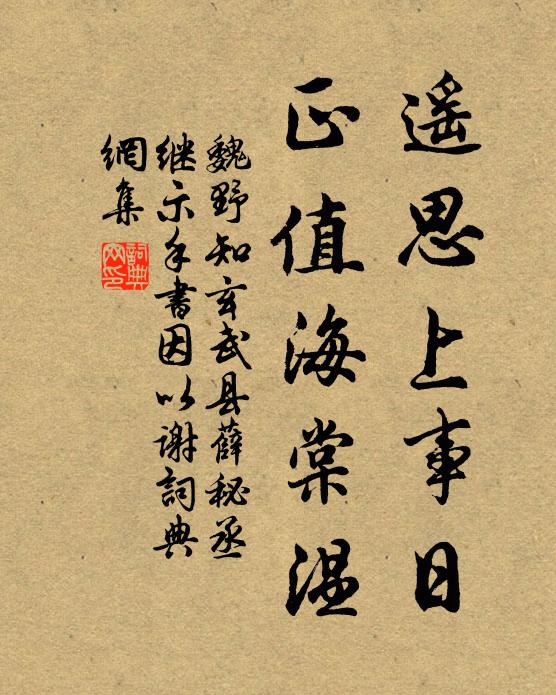 遥思上事日
正值海棠温
魏野知玄武县薛秘丞
继示手書因以谢詞典
網集
詞典网印